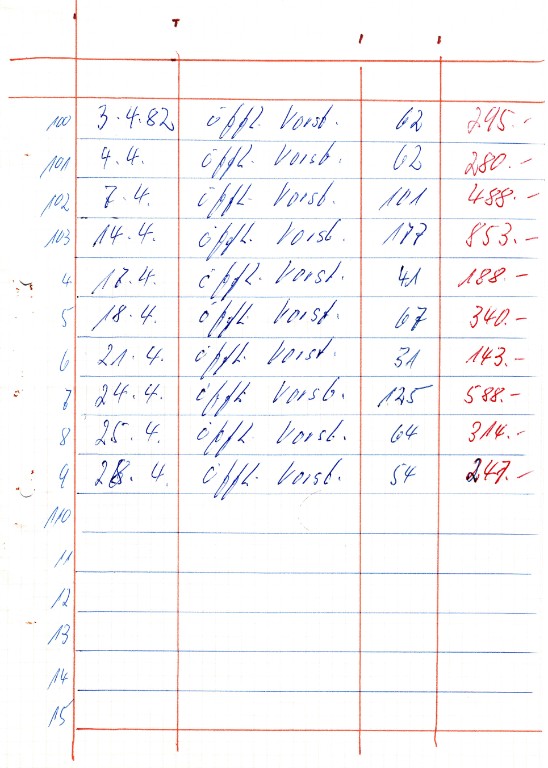 100 3.4.82 öfftl. Vorst. 62 295.-
101 4.4. öfftl. Vorst. 62 280.-
102 7.4. öfftl. Vorst. 101 488.-
103 14.4. öfftl. Vorst. 177 853.-
4 17.4. öfftl. Vorst. 41 188.-
5 18.4. öfftl. Vorst. 67 340.-
6 21.4. öfftl. Vorst. 31 143.-
7 24.4. öfftl. Vorst. 125 588.-
8 25.4. öfftl. Vorst. 64 314.-
9 28.4. öfftl. Vorst. 54 247.-
110
11
12
13
14
15